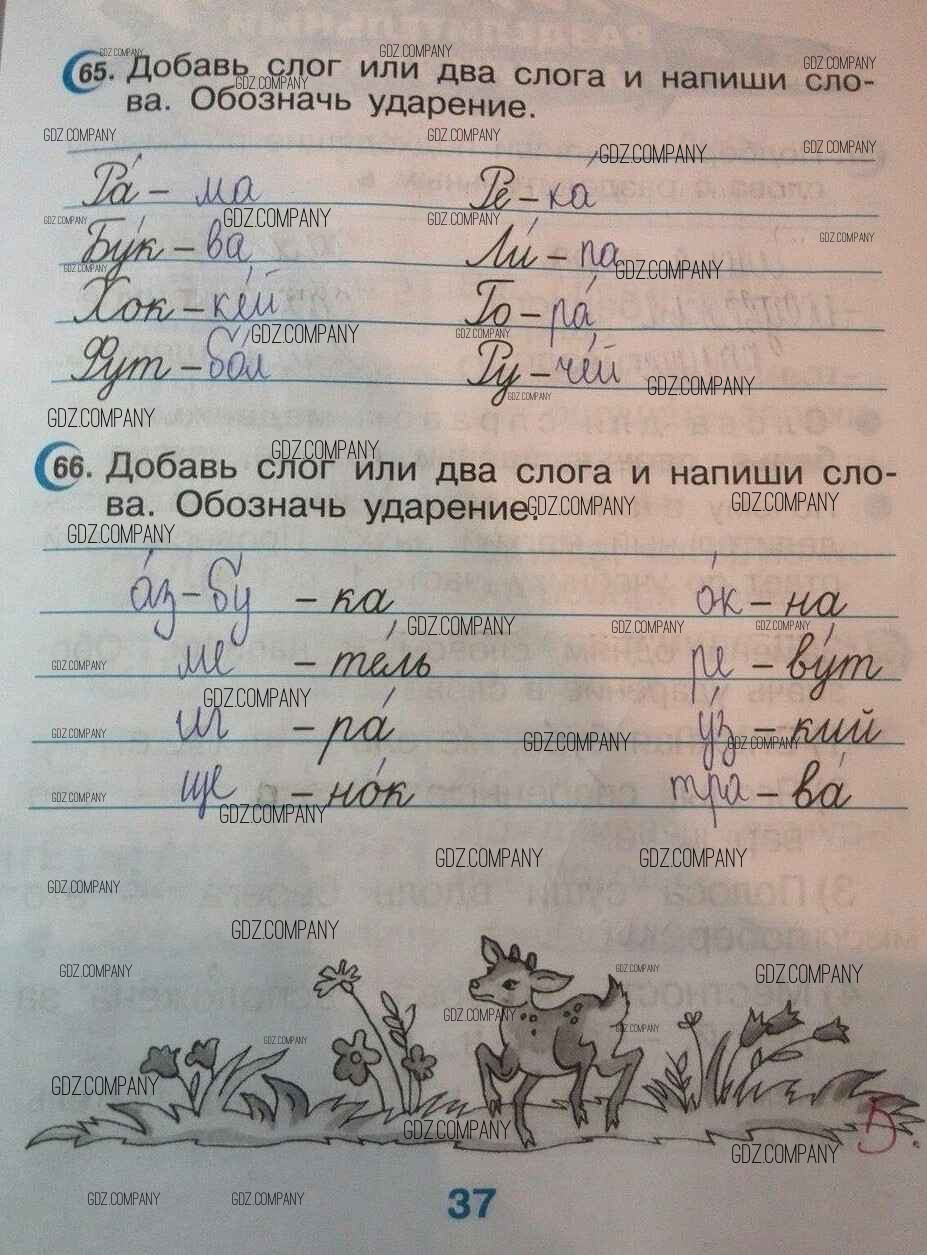 65. Добавь слог или два слога и напиши сло-
ва. Обозначь ударение.
Ра́ – ма Ре – ка́
Бу́к – ва Ли́ – па
Хок – ке́й Го – ра́
Фут – бо́л Ру – че́й
66. Добавь слог или два слога и напиши сло-
ва. Обозначь ударение.
а́з – бу – ка о́к – на
ме – те́ль ре – ву́т
иг – ра́ у́з – кий
ще – но́к тра – ва́
5.
37
GDZ.COMPANY